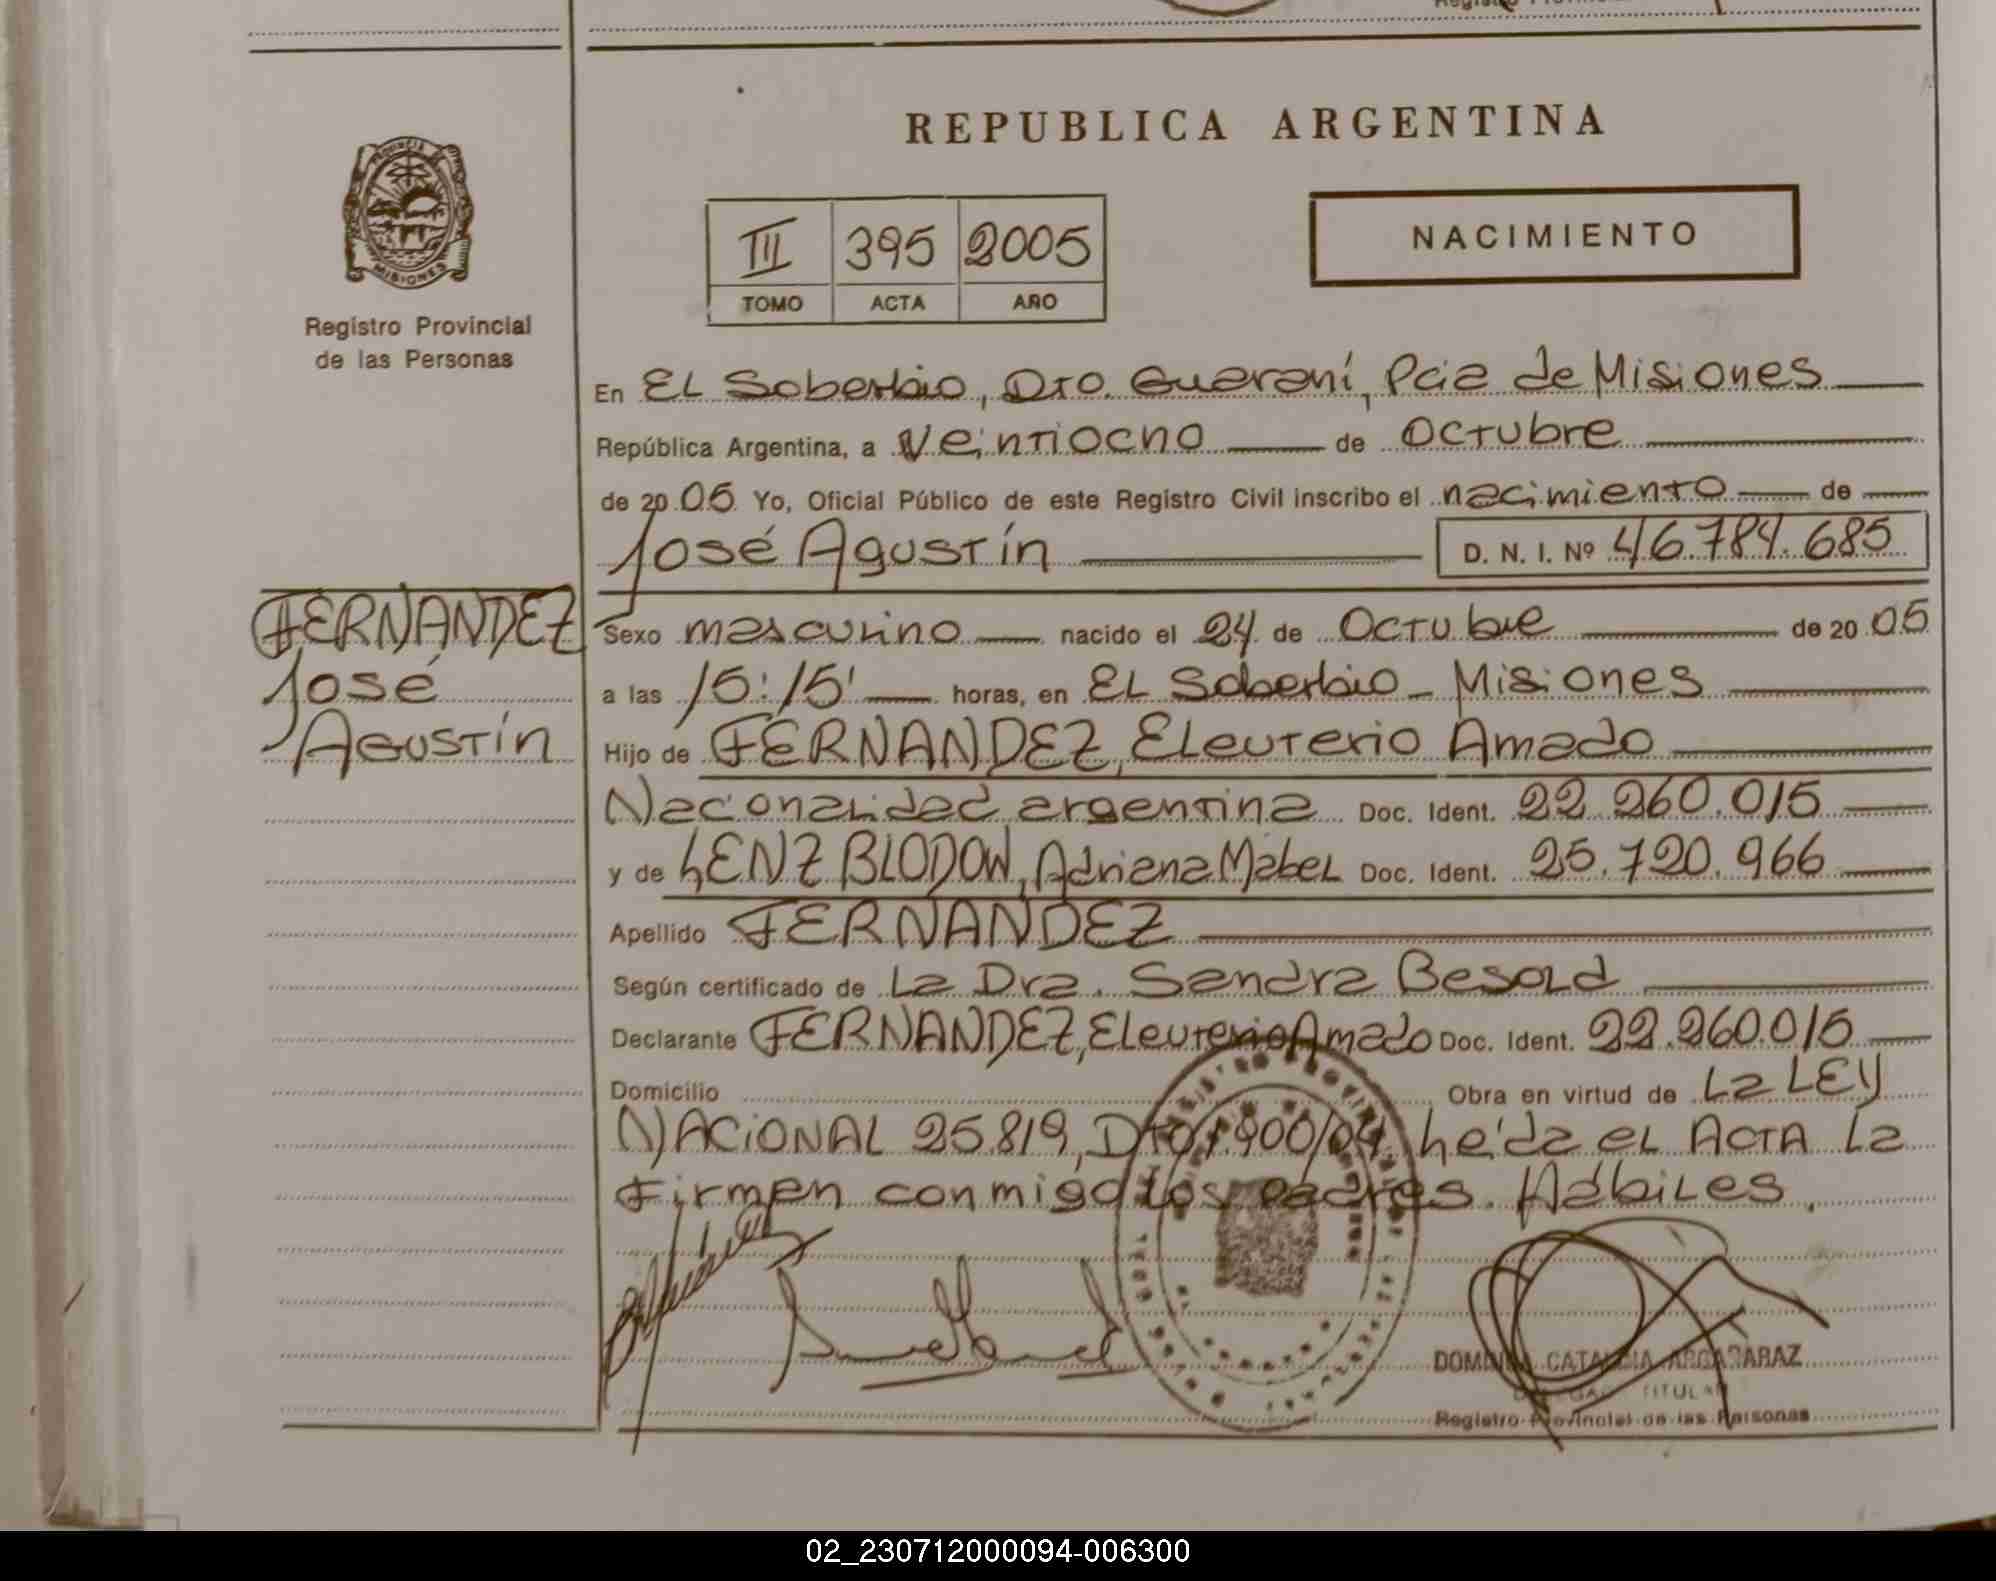 REPUBLICA ARGENTINA
PROVINCIA DE
MISIONES
Registro Provincial
de las Personas
III 395 2005
TOMO ACTA AÑO
NACIMIENTO
En EL Soberbio, Dto. Guaraní, Pcia de Misiones
República Argentina, a Veintiocho de Octubre
de 20 05 Yo, Oficial Público de este Registro Civil inscribo el nacimiento de
José Agustín D. N. I. Nº 46.784.685
FERNANDEZ
José
Agustín
Sexo masculino nacido el 24 de Octubre de 20 05
a las 15:15' horas, en EL Soberbio - Misiones
Hijo de FERNANDEZ, Eleuterio Amado
Nacionalidad argentina Doc. Ident. 22.260.015
y de LENZ BLODOW, Adriana Mabel Doc. Ident. 25.720.966
Apellido FERNANDEZ
Según certificado de La Dra. Sandra Besold
Declarante FERNANDEZ, Eleuterio Amado Doc. Ident. 22.260.015
Domicilio Obra en virtud de La LEY
NACIONAL 25.819, Dto 1.900/04. Leída el ACTA La
Firman conmigo los padres. Hábiles.
ARGAÑARAZ
TITULAR
Registro Provincial de las Personas
02_230712000094-006300